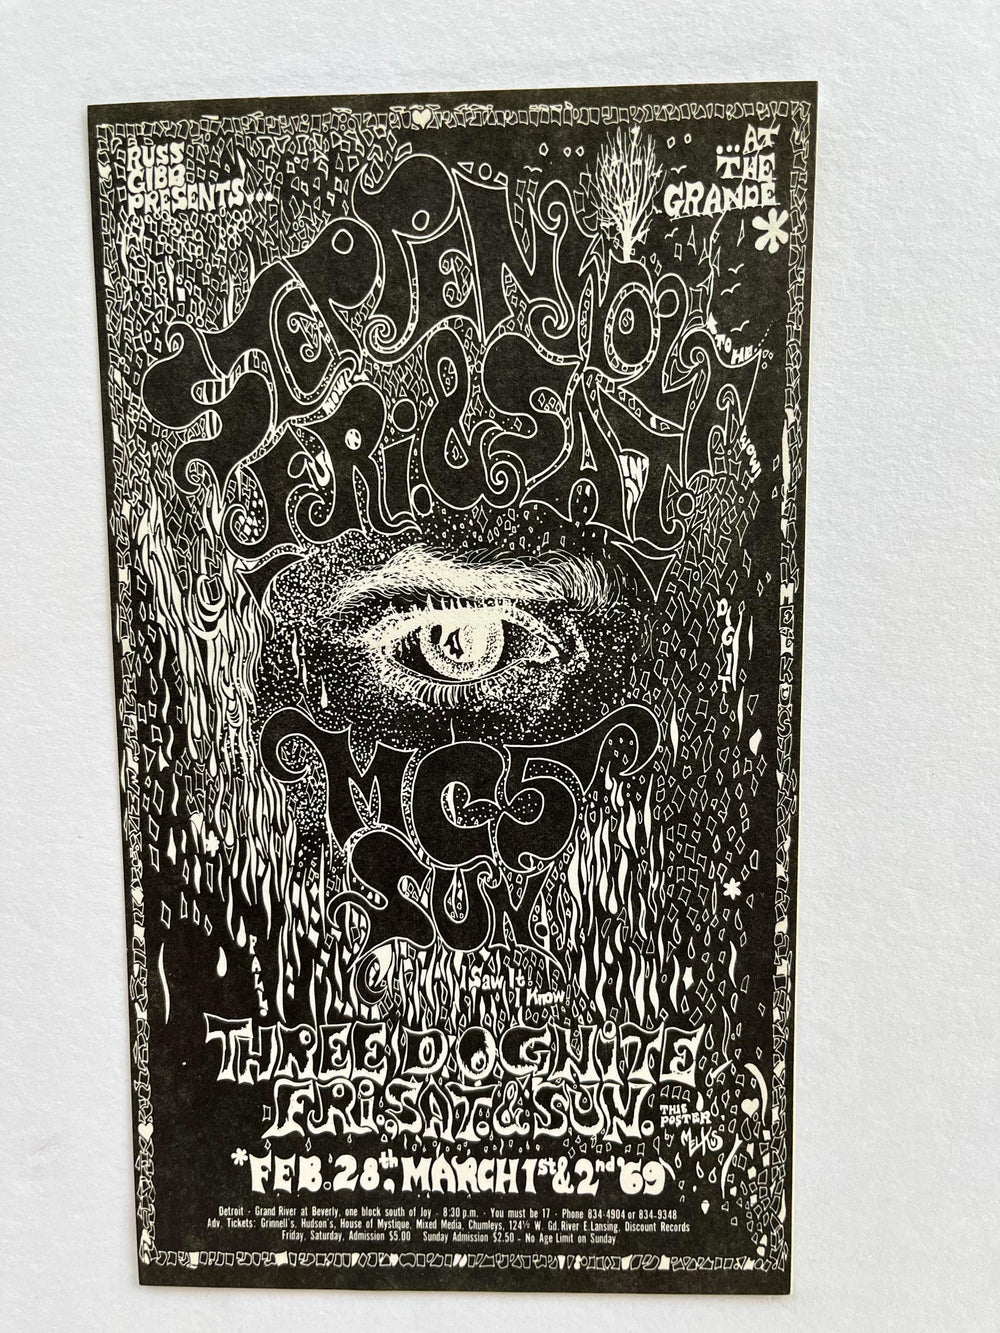 RUSS
GIBB
PRESENTS...
...AT
THE
GRANDE
*
STEPPENWOLF
FRI. & SAT.
TO HE
WOW!
DIG IT
MC5
SUN.
FALL
I Saw It
I Know
THREE DOG NITE
FRI. SAT. & SUN.
THIS
POSTER
by MELKUS
*FEB. 28th, MARCH 1st & 2nd '69
Detroit - Grand River at Beverly, one block south of Joy - 8:30 p.m. - You must be 17 - Phone 834-4904 or 834-9348
Adv. Tickets: Grinnell's, Hudson's, House of Mystique, Mixed Media, Chumleys, 124½ W. Gd. River E. Lansing, Discount Records
Friday, Saturday, Admission $5.00 Sunday Admission $2.50 - No Age Limit on Sunday